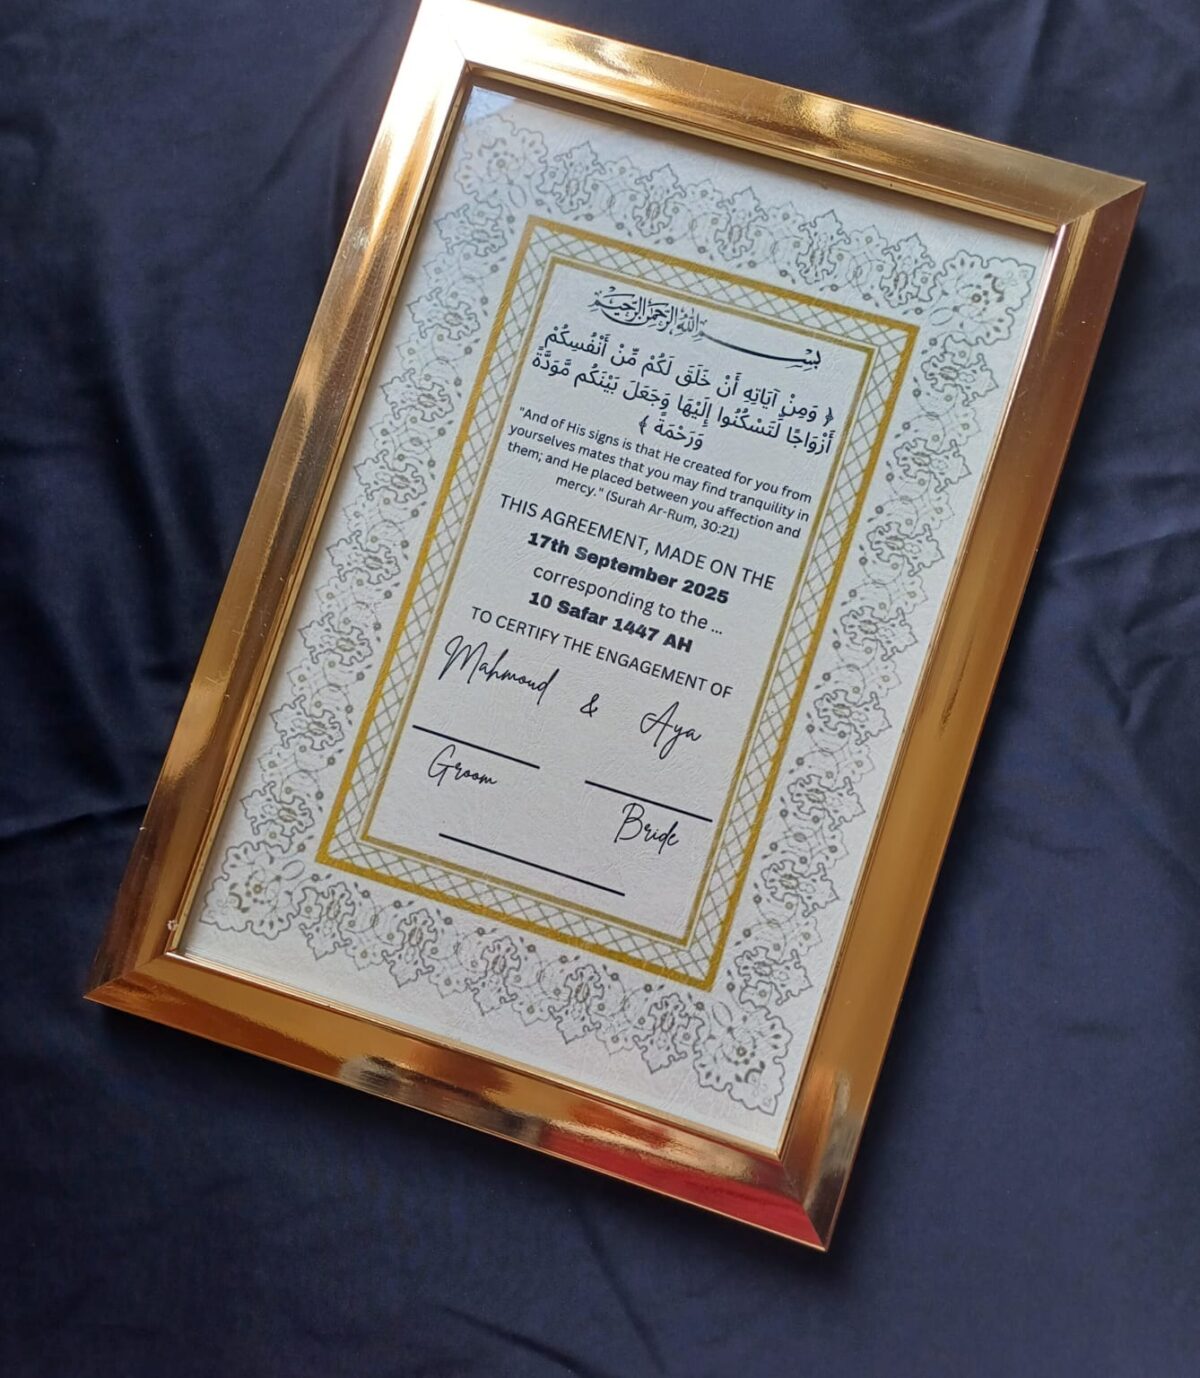 بسم الله الرحمن الرحيم
﴿ وَمِنْ آيَاتِهِ أَنْ خَلَقَ لَكُم مِّنْ أَنْفُسِكُمْ
أَزْوَاجًا لِّتَسْكُنُوا إِلَيْهَا وَجَعَلَ بَيْنَكُم مَّوَدَّةً
وَرَحْمَةً ﴾
"And of His signs is that He created for you from
yourselves mates that you may find tranquility in
them; and He placed between you affection and
mercy." (Surah Ar-Rum, 30:21)
THIS AGREEMENT, MADE ON THE
17th September 2025
corresponding to the ...
10 Safar 1447 AH
TO CERTIFY THE ENGAGEMENT OF
Mahmoud & Aya
Groom
Bride